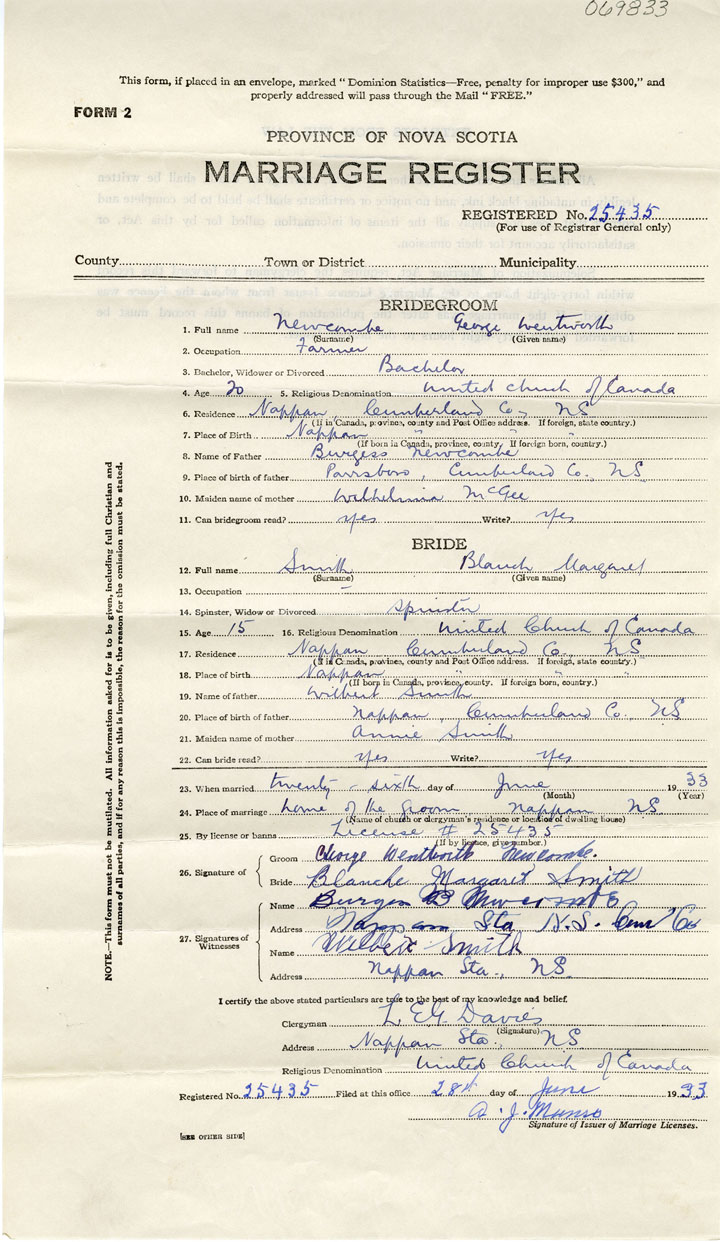 069833
This form, if placed in an envelope, marked "Dominion Statistics—Free, penalty for improper use $300," and
properly addressed will pass through the Mail "FREE."
FORM 2
PROVINCE OF NOVA SCOTIA
MARRIAGE REGISTER
REGISTERED No. 25435
(For use of Registrar General only)
County Town or District Municipality
BRIDEGROOM
1. Full name Newcombe George Wentworth
(Surname) (Given name)
2. Occupation Farmer
3. Bachelor, Widower or Divorced Bachelor
4. Age 20 5. Religious Denomination United Church of Canada
6. Residence Nappan Cumberland Co, NS
(If in Canada, province, county and Post Office address. If foreign, state country.)
7. Place of Birth Nappan " " "
(If born in Canada, province, county. If foreign born, country.)
8. Name of Father Burgess Newcombe
9. Place of birth of father Parrsboro, Cumberland Co. NS
10. Maiden name of mother Wilhelmina McGee
11. Can bridegroom read? yes Write? yes
BRIDE
12. Full name Smith Blanch Margaret
(Surname) (Given name)
13. Occupation –
14. Spinster, Widow or Divorced Spinster
15. Age 15 16. Religious Denomination United Church of Canada
17. Residence Nappan Cumberland Co, NS
(If in Canada, province, county and Post Office address. If foreign, state country.)
18. Place of birth Nappan " " "
(If born in Canada, province, county. If foreign born, country.)
19. Name of father Wilbert Smith
20. Place of birth of father Nappan, Cumberland Co, NS
21. Maiden name of mother Annie Smith
22. Can bride read? yes Write? yes
23. When married twenty-sixth day of June 1933
(Month) (Year)
24. Place of marriage home of the groom Nappan NS
(Name of church or clergyman's residence or location of dwelling house)
25. By license or banns License # 25435
(If by licence, give number.)
26. Signature of
Groom George Wentworth Newcombe.
Bride Blanche Margaret Smith
27. Signatures of Witnesses
Name Burgess B Newcombe
Address Nappan Sta N.S. Cum Co
Name Wilbert Smith
Address Nappan Sta., NS
I certify the above stated particulars are true to the best of my knowledge and belief.
Clergyman L. E. G. Davies
(Signature)
Address Nappan Sta., NS
Religious Denomination United Church of Canada
Registered No. 25435 Filed at this office 28th day of June 1933
A. J. Munro
Signature of Issuer of Marriage Licenses.
[SEE OTHER SIDE]
NOTE.—This form must not be mutilated. All information asked for is to be given, including full Christian and
surnames of all parties, and if for any reason this is impossible, the reason for the omission must be stated.